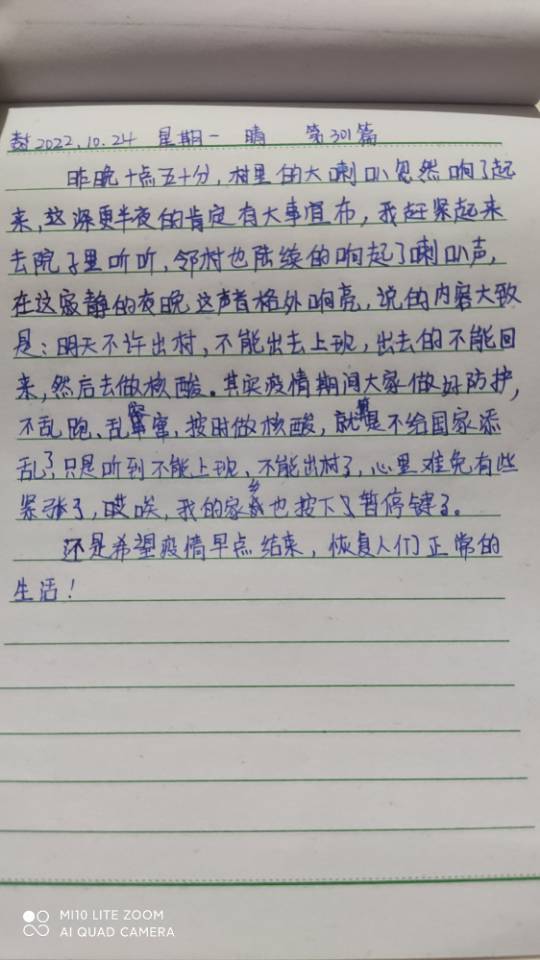 封2022.10.24 星期一 晴 第301篇
昨晚十点五十分，村里的大喇叭忽然响了起
来，这深更半夜的肯定有大事宣布，我赶紧起来
去院子里听听，邻村也陆续的响起了喇叭声，
在这寂静的夜晚这声音格外响亮，说的内容大致
是：明天不许出村，不能出去上班，出去的不能回
来，然后去做核酸。其实疫情期间大家做好防护，
不乱跑、乱窜，按时做核酸，就算是不给国家添
乱了，只是听到不能上班、不能出村了，心里难免有些
紧张了，哎唉，我的家乡也按下了暂停键了。
还是希望疫情早点结束，恢复人们正常的
生活！
MI10 LITE ZOOM
AI QUAD CAMERA